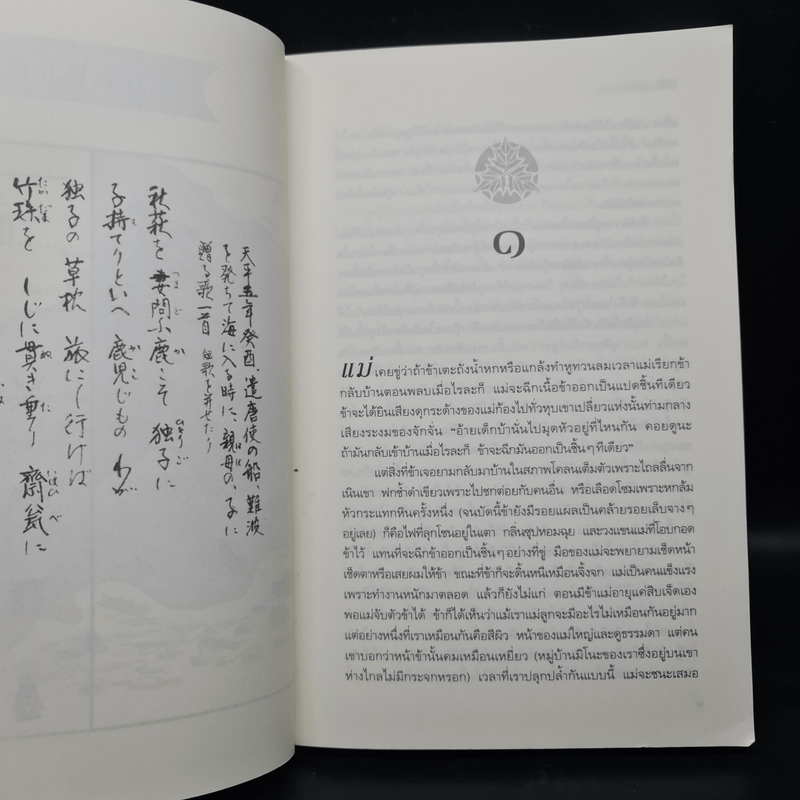 天平五年癸酉、遣唐使の船、難波
を発ちて海に入る時に、親母の、子に
贈る歌一首 短歌を并せたり
秋萩を 妻問ふ鹿こそ 独子に
子持てりといへ 鹿児じもの わが
独子の 草枕 旅にし行けば
竹珠を しじに貫き垂り 齋瓮に
๑
แม่ เคยขู่ว่าถ้าข้าเตะถังน้ำหกหรือแกล้งทำหูทวนลมเวลาแม่เรียกข้า
กลับบ้านตอนพลบเมื่อไรละก็ แม่จะฉีกเนื้อข้าออกเป็นแปดชิ้นทีเดียว
ข้าจะได้ยินเสียงดุกระด้างของแม่ก้องไปทั่วหุบเขาเปลี่ยวแห่งนั้นท่ามกลาง
เสียงระงมของจักจั่น “อ้ายเด็กบ้านั่นไปมุดหัวอยู่ที่ไหนกัน คอยดูนะ
ถ้ามันกลับเข้าบ้านเมื่อไรละก็ ข้าจะฉีกมันออกเป็นชิ้นๆ ทีเดียว”
แต่สิ่งที่ข้าเจอยามกลับมาบ้านในสภาพโคลนเต็มตัวเพราะไถลลื่นจาก
เนินเขา ฟกช้ำดำเขียวเพราะไปชกต่อยกับคนอื่น หรือเลือดโซมเพราะหกล้ม
หัวกระแทกหินครั้งหนึ่ง (จนบัดนี้ข้ายังมีรอยแผลเป็นคล้ายรอยเล็บจางๆ
อยู่เลย) ก็คือไฟที่ลุกโชนอยู่ในเตา กลิ่นซุปหอมฉุย และวงแขนแม่ที่โอบกอด
ข้าไว้ แทนที่จะฉีกข้าออกเป็นชิ้นๆ อย่างที่ขู่ มือของแม่จะพยายามเช็ดหน้า
เช็ดตาหรือเสยผมให้ข้า ขณะที่ข้าก็จะดิ้นหนีเหมือนจิ้งจก แม่เป็นคนแข็งแรง
เพราะทำงานหนักมาตลอด แล้วก็ยังไม่แก่ ตอนมีข้าแม่อายุแค่สิบเจ็ดเอง
พอแม่จับตัวข้าได้ ข้าก็ได้เห็นว่าแม้เราแม่ลูกจะมีอะไรไม่เหมือนกันอยู่มาก
แต่อย่างหนึ่งที่เราเหมือนกันคือสีผิว หน้าของแม่ใหญ่และดูธรรมดา แต่คน
เขาบอกว่าหน้าข้านั้นคมเหมือนเหยี่ยว (หมู่บ้านมิโนะของเราซึ่งอยู่บนเขา
ห่างไกลไม่มีกระจกหรอก) เวลาที่เราปลุกปล้ำกันแบบนี้ แม่จะชนะเสมอ